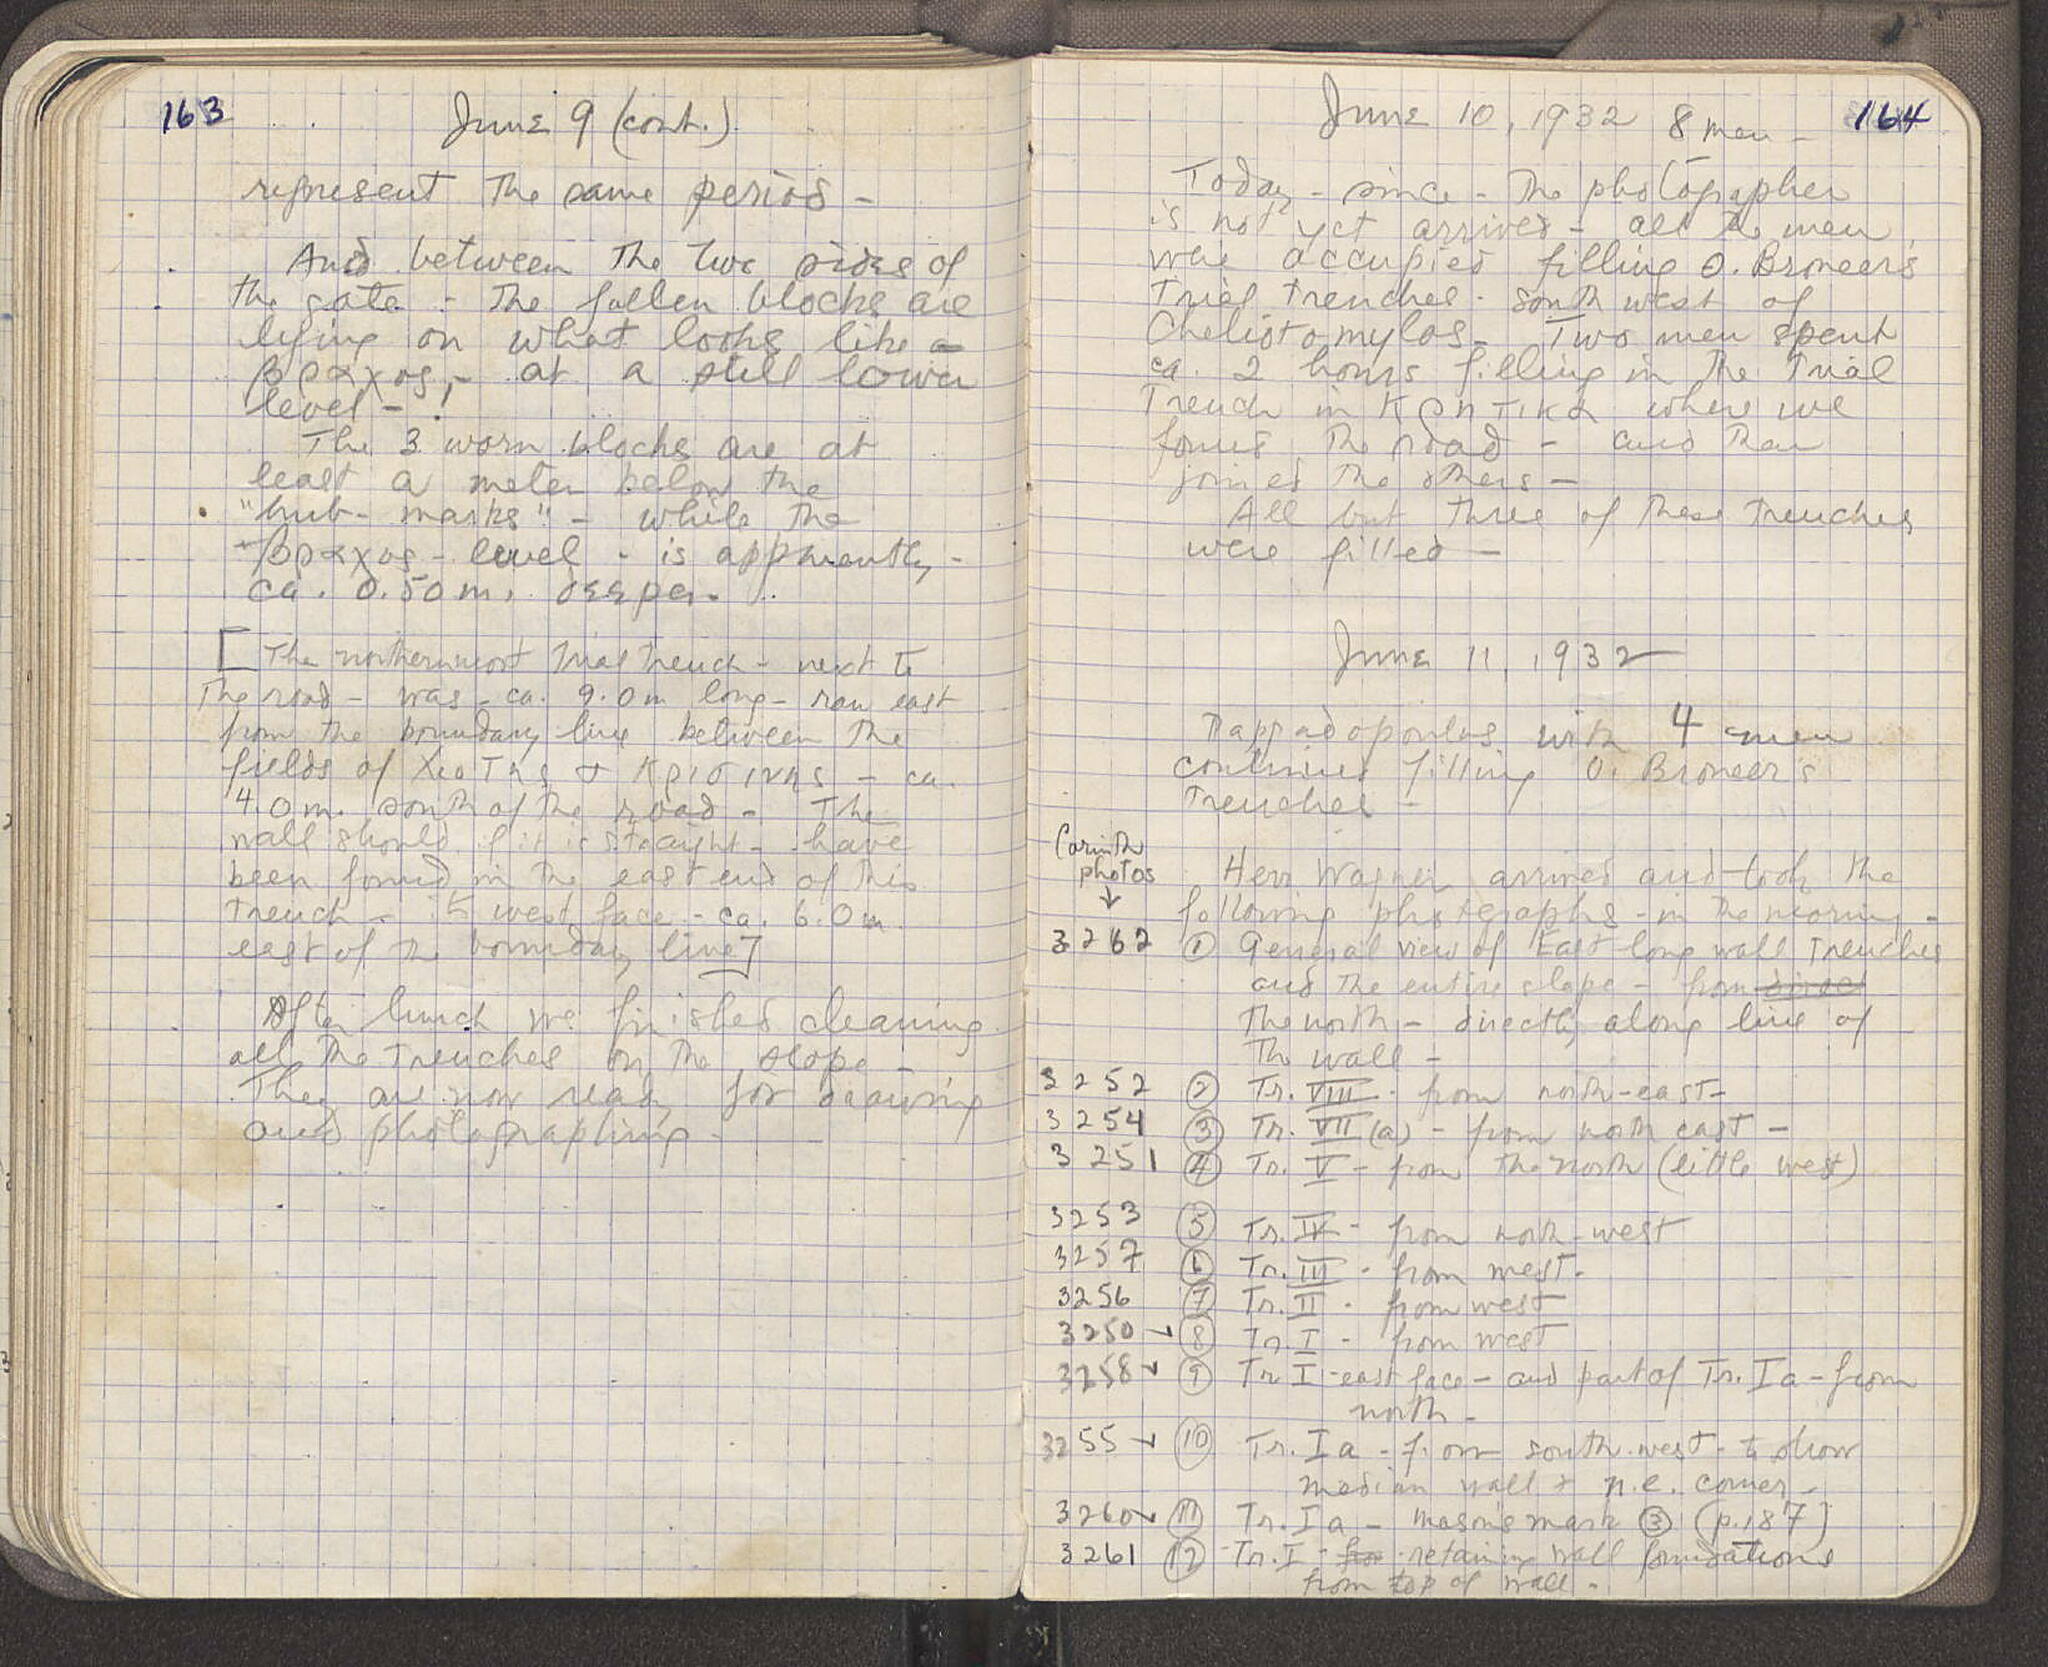 163
June 9 (cont.)
represent the same period -
And between the two sides of
the gate - the fallen blocks are
lying on what looks like a
βραχος - at a still lower
level - !
The 3 worn blocks are at
least a meter below the
"hub-marks" - while the
βραχος - level - is apparently -
ca. 0.50 m. deeper.
[The northernmost trial trench - next to
the road - was - ca. 9.0 m long - ran east
from the boundary line between the
fields of & - ca.
4.0 m. south of the road - The
wall should, if it is straight - have
been found in the east end of this
trench - its west face - ca. 6.0 m.
east of the boundary line]
After lunch we finished cleaning
all the trenches on the slope -
They are now ready for drawing
and photographing -
164
June 10, 1932 8 men -
Today - since - the photographer
is not yet arrived - all the men
were occupied filling O. Broneer's
trial trenches - south west of
Cheliotomylos - Two men spent
ca. 2 hours filling in the trial
trench in Κρητικα where we
found the road - and then
joined the others -
All but three of these trenches
were filled -
June 11, 1932
Pappadopoulos with 4 men
continued filling O. Broneer's
trenches -
Corinth
photos
↓
Herr Wagner arrived and took the
following photographs - in the morning -
3262 ① General view of East long wall trenches
and the entire slope - from direct
the north - directly along line of
the wall -
3252 ② Tr. VIII - from north-east -
3254 ③ Tr. VII (a) - from north east -
3251 ④ Tr. V - from the north (little west)
3253 ⑤ Tr. IV - from north-west
3257 ⑥ Tr. III - from west -
3256 ⑦ Tr. II - from west
3250 ✓ ⑧ Tr. I - from west
3258 ✓ ⑨ Tr I - east face - and part of Tr. Ia - from
north -
3255 ✓ ⑩ Tr. Ia - from south-west - to show
median wall & n.e. corner -
3260 ✓ ⑪ Tr. Ia - mason's mark ③ (p. 187)
3261 ⑫ Tr. I - retaining wall foundations
from top of wall -